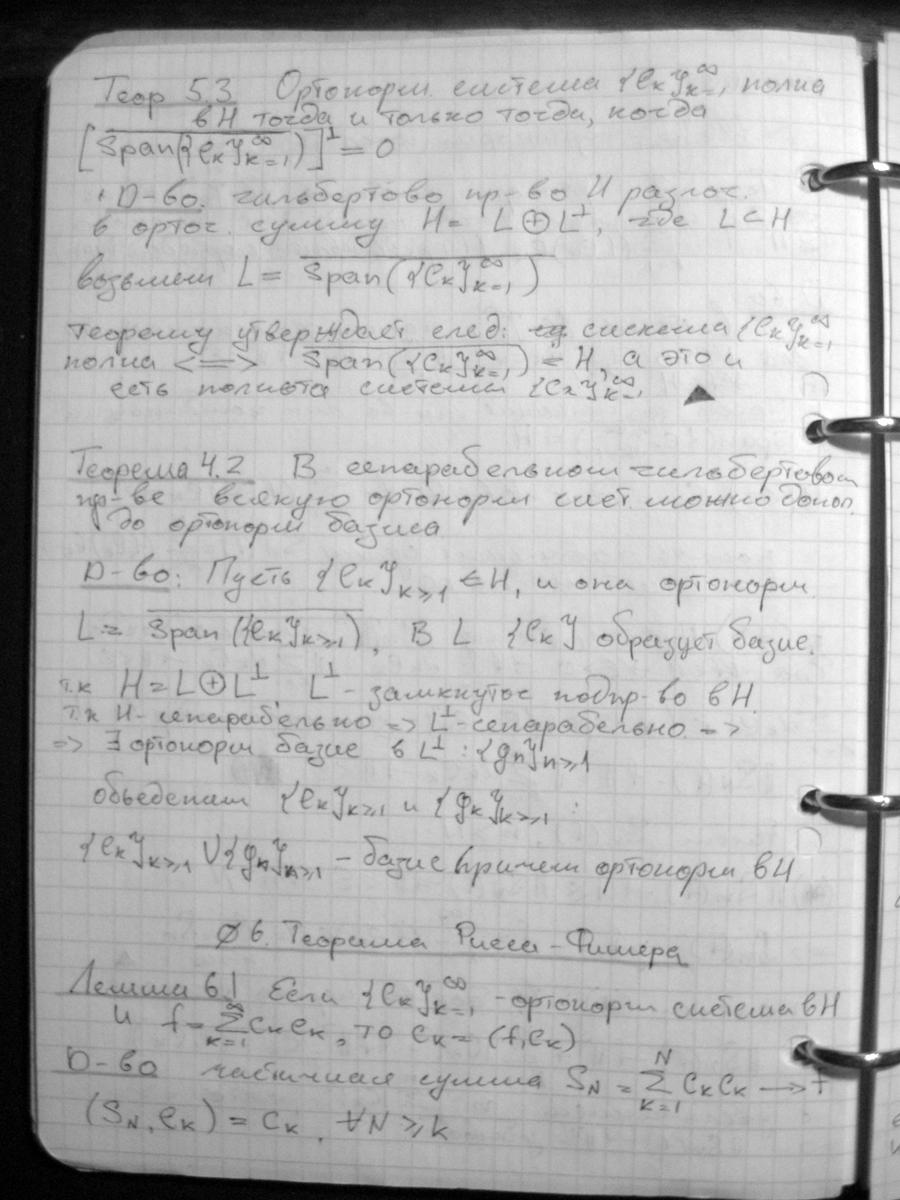 Теор 5.3 Ортонорм. система {e_k}_{k=1}^∞ полна
в H тогда и только тогда, когда
[Span({e_k}_{k=1}^∞)]^⊥ = 0
Д-во. гильбертово пр-во H разлож.
в ортог. сумму H = L ⊕ L^⊥, где L ⊂ H
возьмем L = Span({e_k}_{k=1}^∞)
теорему утверждает след: система {e_k}_{k=1}^∞
полна <=> Span({e_k}_{k=1}^∞) = H, а это и
есть полнота системы {e_k}_{k=1}^∞ ▲
Теорема 4.2 В сепарабельном гильбертовом
пр-ве всякую ортонорм сист. можно допол.
до ортонорм базиса
Д-во: Пусть {e_k}_{k≥1} ∈ H, и она ортонорм.
L = Span({e_k}_{k≥1}), В L {e_k} образует базис.
т.к H = L ⊕ L^⊥ L^⊥ - замкнутое подпр-во в H.
т.к H - сепарабельно => L^⊥ - сепарабельно =>
=> ∃ ортонорм базис в L^⊥ : {g_n}_{n≥1}
объеденим {e_k}_{k≥1} и {g_k}_{k≥1} :
{e_k}_{k≥1} ∪ {g_n}_{n≥1} - базис причем ортонорм в H
§6. Теорема Рисса-Фишера
Лемма 6.1 Если {e_k}_{k=1}^∞ - ортонорм система в H
и f = ∑_{k=1}^∞ c_k e_k, то c_k = (f, e_k)
Д-во частичная сумма S_N = ∑_{k=1}^N c_k e_k → f
(S_N, e_k) = c_k, ∀N ≥ k